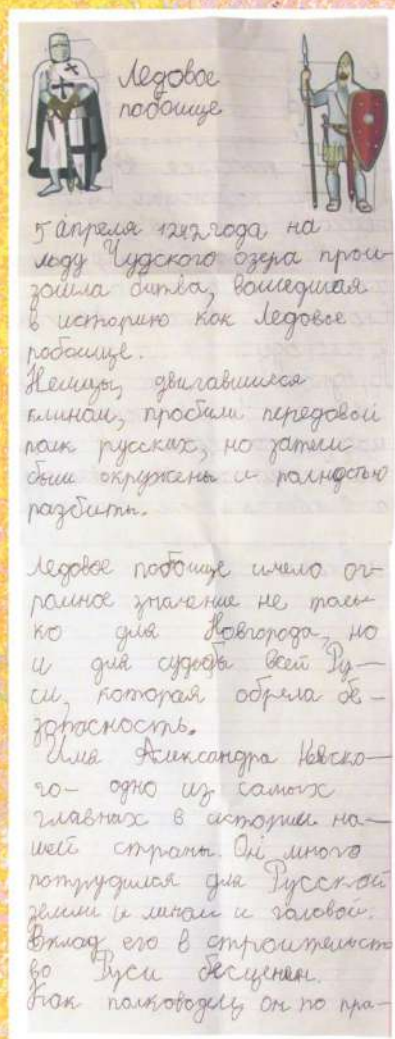 Ледовое
побоище
5 апреля 1242 года на
льду Чудского озера прои-
зошла битва, вошедшая
в историю как Ледовое
побоище.
Немцы, двигавшиеся
клином, пробили передовой
полк русских, но затем
были окружены и полностью
разбиты.
Ледовое побоище имело ог-
ромное значение не толь-
ко для Новгорода, но
и для судьбы всей Ру-
си, которая обрела бе-
зопасность.
Имя Александра Невско-
го- одно из самых
главных в истории на-
шей страны. Он много
потрудился для Русской
земли и и головой.
Вклад его в строительст
во Руси бесценен.
Как полководец он по пра-